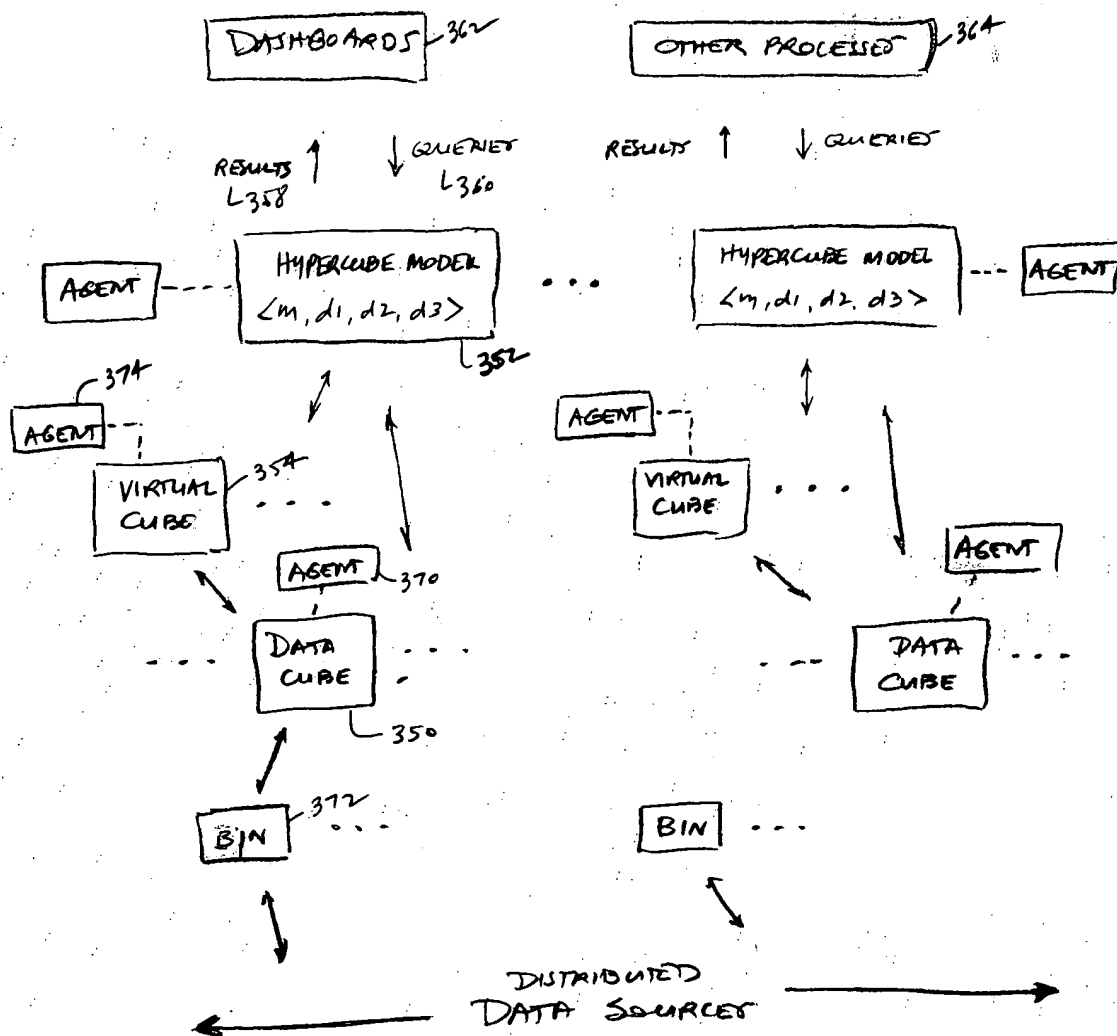 DASHBOARDS 362
OTHER PROCESSES 364
RESULTS
358
QUERIES
360
RESULTS
QUERIES
AGENT
HYPERCUBE MODEL
<m, d1, d2, d3>
352
...
HYPERCUBE MODEL
<m, d1, d2, d3>
AGENT
374
AGENT
VIRTUAL
CUBE
354
...
AGENT
VIRTUAL
CUBE
...
AGENT
370
DATA
CUBE
350
AGENT
DATA
CUBE
BIN
372
...
BIN
...
DISTRIBUTED
DATA SOURCES